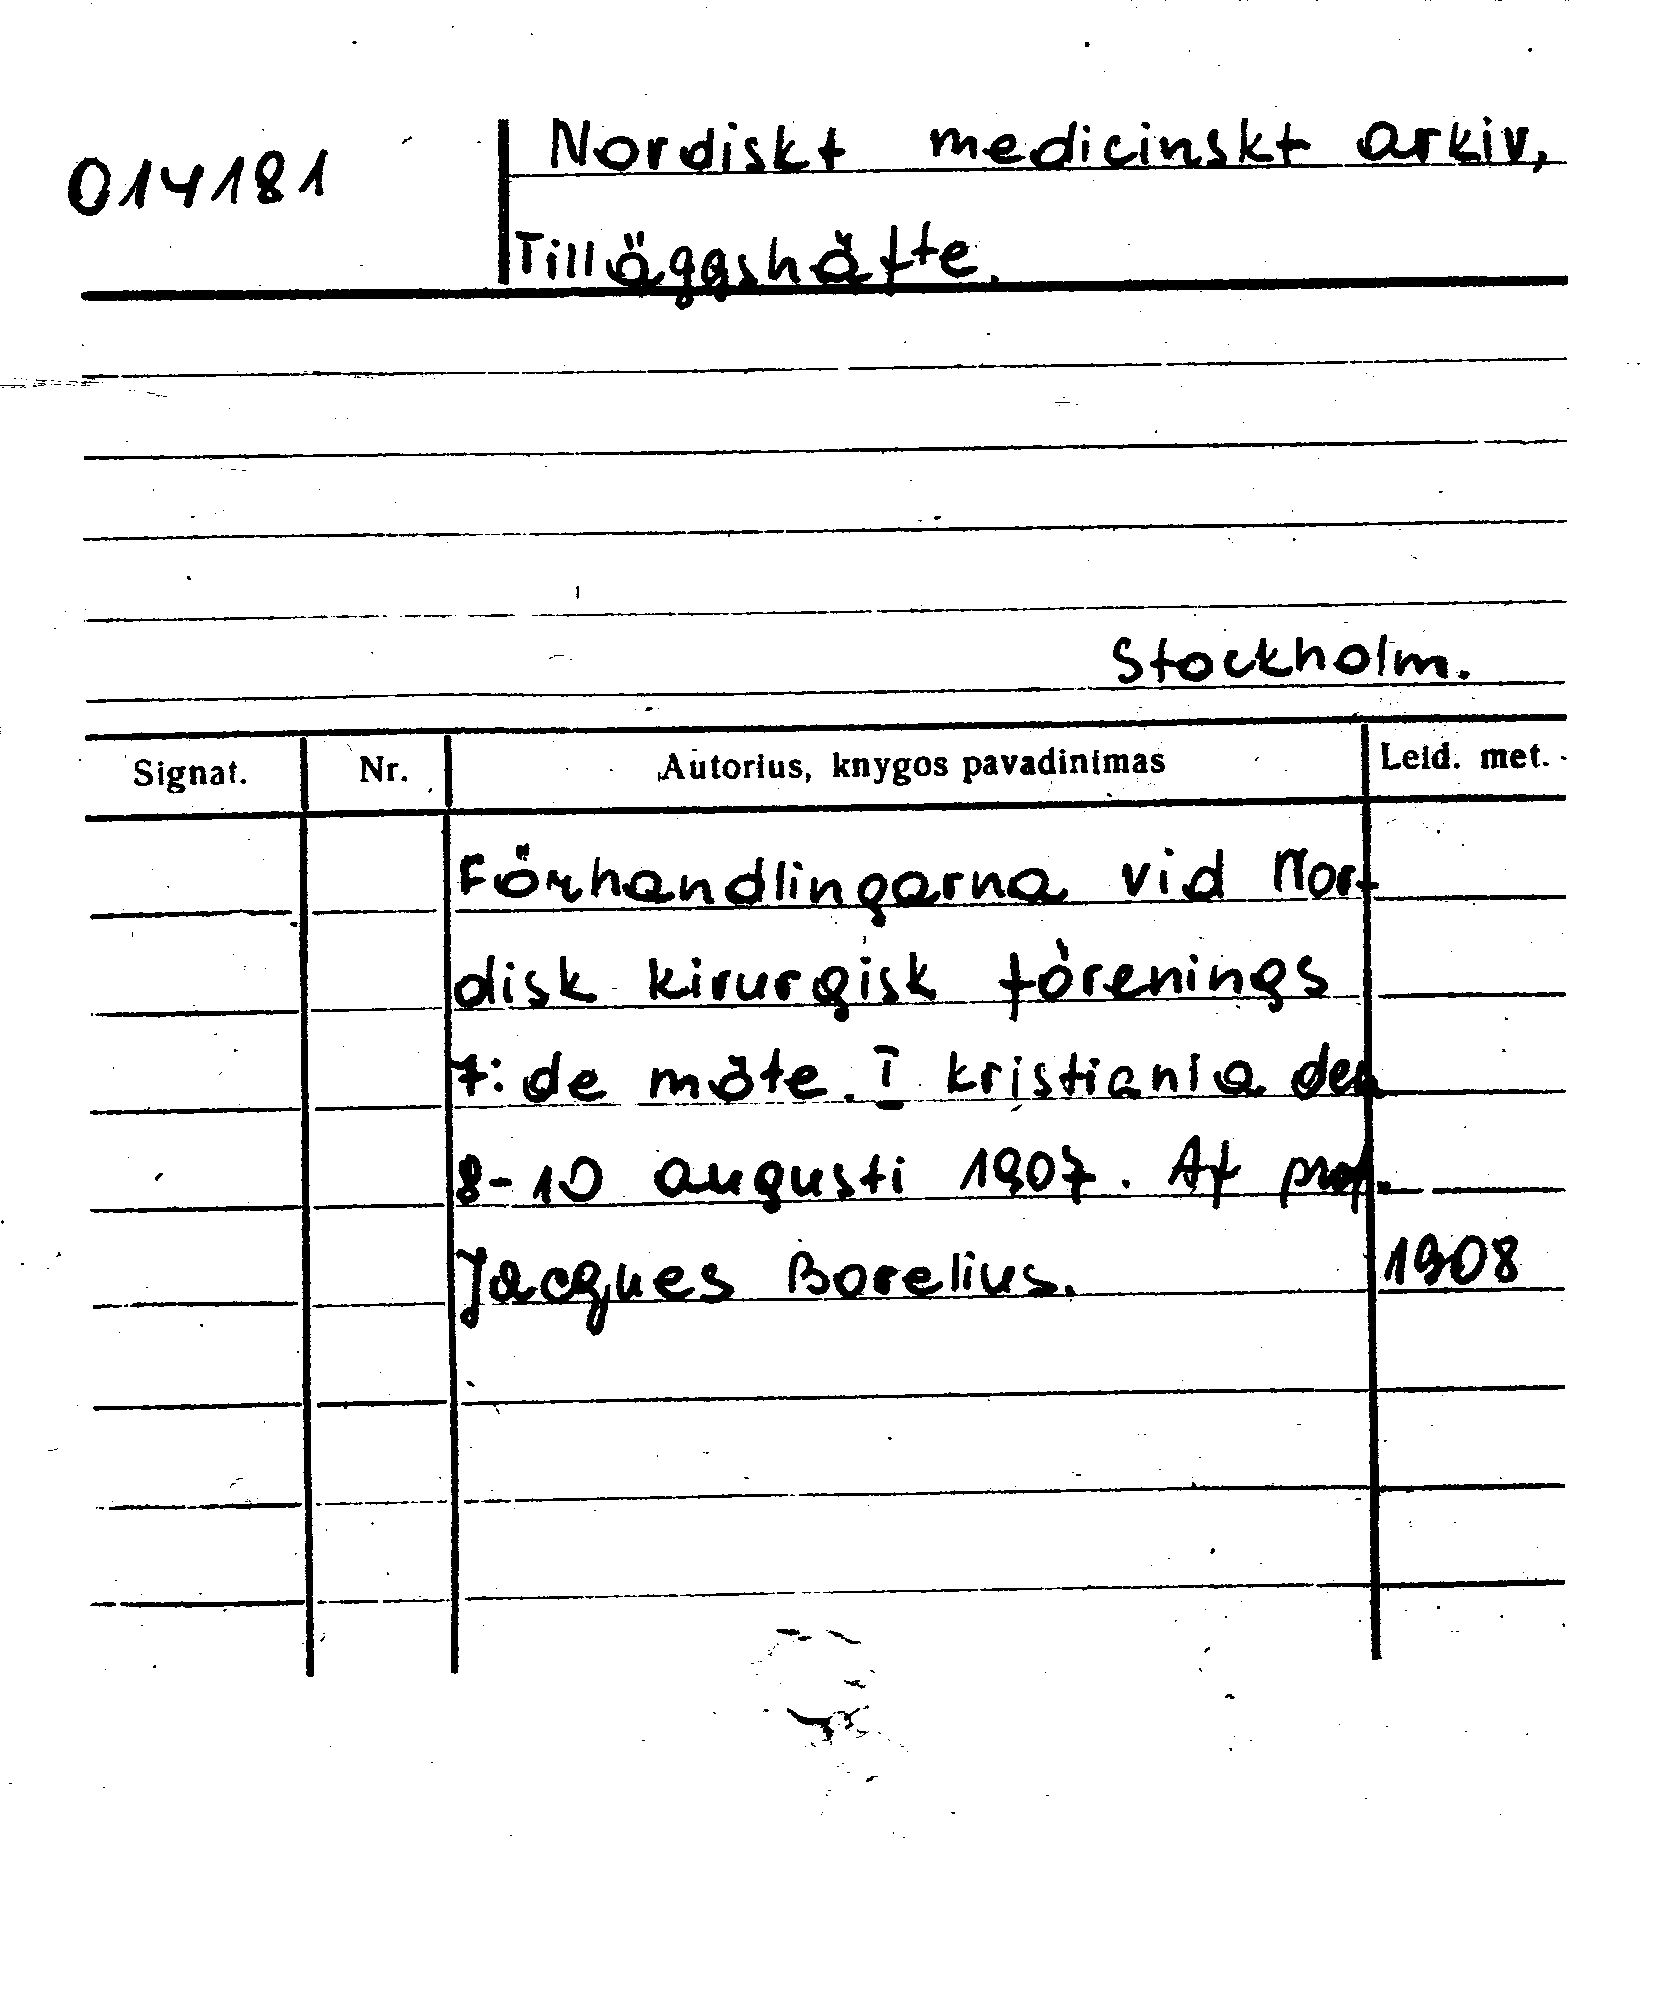 014181
Nordiskt medicinskt arkiv,
Tilläggshäfte.
Stockholm.
Signat. Nr. Autorius, knygos pavadinimas Leid. met.
Förhandlingarna vid Nor-
disk kirurgisk förenings
7:de möte. I kristiania den
8-10 augusti 1907. Af prof.
Jacques Borelius. 1908